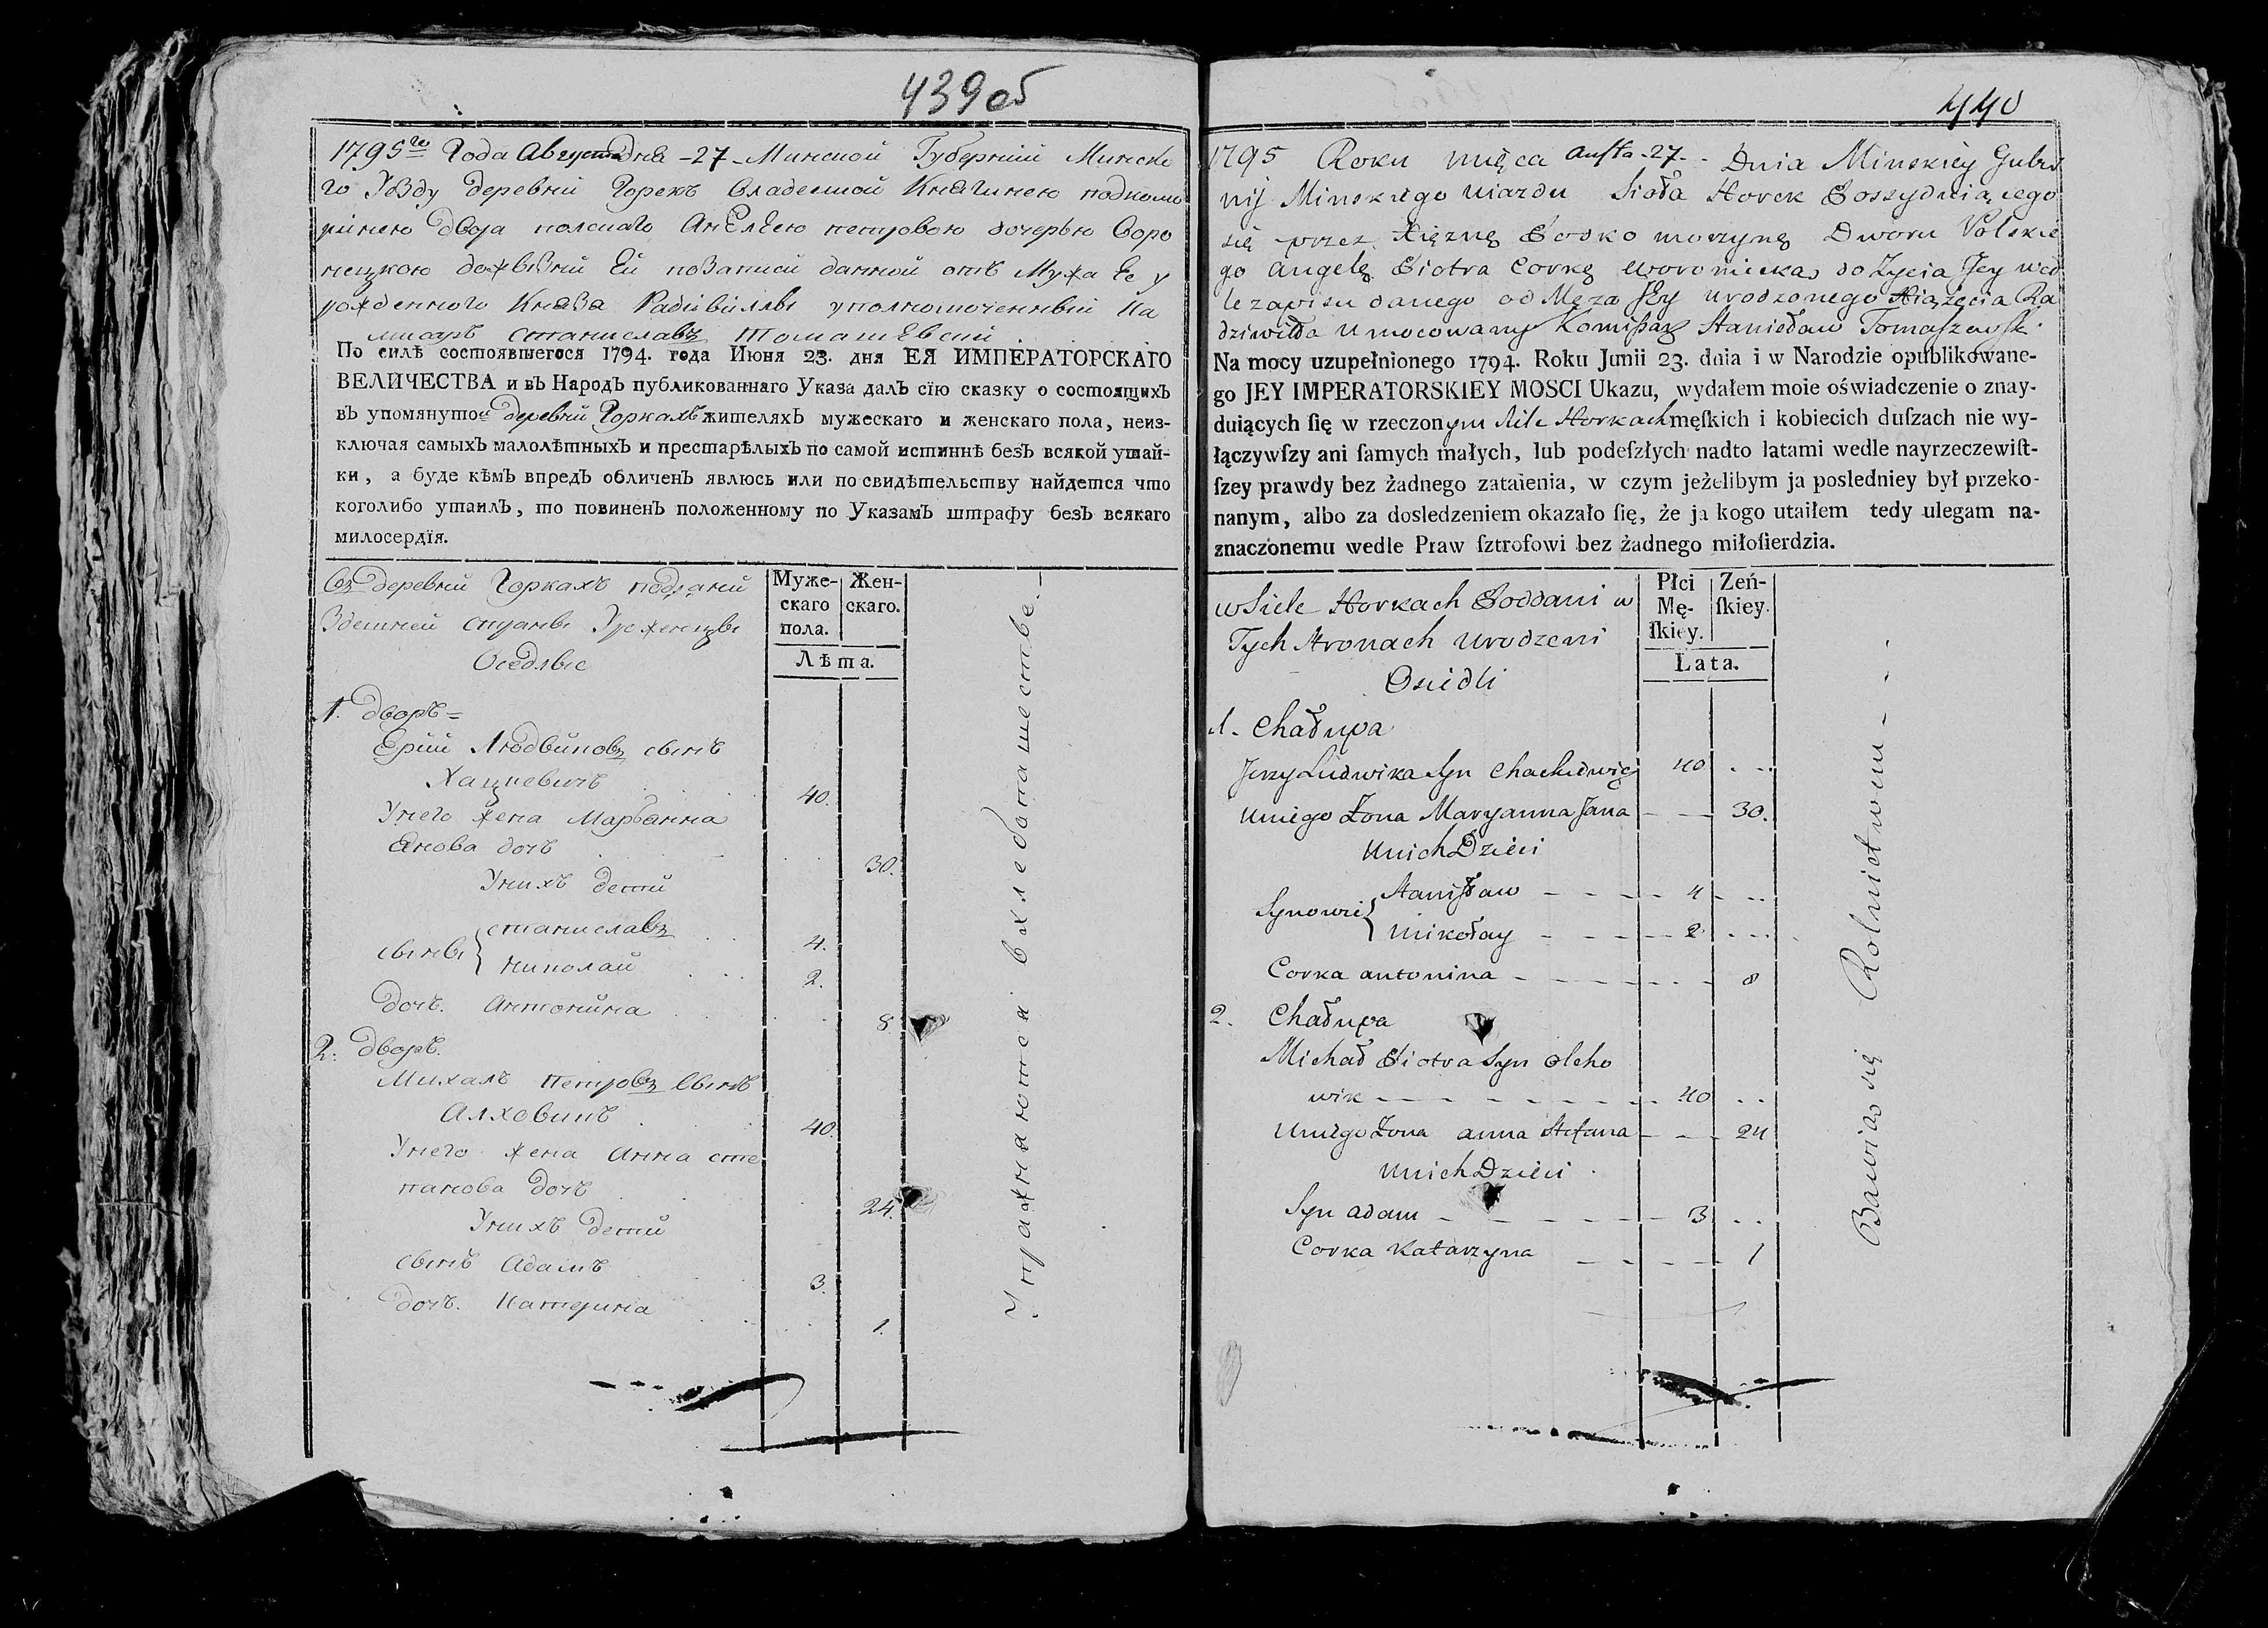 439 об
1795го Года Августа Дня -27- Минской Губернiи Минско
го Уѣзду деревни Горекъ владѣемой Княгинею подкомо
ринею двора полскаго Анѣлею петровою дочерью Воро
нецкою дожывтнй Ей по записи данной отъ Мужа Ее у
рожденного Князя Радзивилла уполномоченный Ка
мисаръ Станиславъ Томашевскiй
По силѣ состоявшегося 1794. года Июня 23. дня ЕЯ ИМПЕРАТОРСКАГО
ВЕЛИЧЕСТВА и въ Народъ публикованнаго Указа далъ сїю сказку о состоящихъ
въ упомянутой деревни Горкахъ жителяхъ мужескаго и женскаго пола, неиз-
ключая самыхъ малолѣтныхъ и престарѣлыхъ по самой истиннѣ безъ всякой утай-
ки, а буде кѣмъ впредь обличенъ явлюсь или по свидѣтельству найдется что
коголибо утаилъ, то повиненъ положенному по Указамъ штрафу безъ всякаго
милосердїя.
Въ деревни Горкахъ подданiи
Здешней страны Уроженцы
Оседлые
Муже-
скаго
пола.
Жен-
скаго.
Лѣта.
1. дворъ =
Ерiй Людвиковъ сынъ
Хацкевичъ 40.
У него жена Марьянна
Янова дочь 30.
У нихъ дети
сыны { Станиславъ 4.
Николай 2.
Дочь Антонина 8
2. дворъ.
Михалъ Петровъ Сынъ
Алховикъ 40.
У него жена Анна Сте
панова дочь 24.
У нихъ дети
сынъ Адамъ 3.
дочь Катерина 1.
Упражняются в хлебопашестве.
440
1795 Roku mięca Austa -27- Dnia Minskiey Guber
nij Minskiego Uiazdu Sioła Horek Possyduiącego
się przez Xiężnę Podkomorzynę Dworu Polskie
go Angelę Piotra Corkę Woroniecką do Życia Jey wed
le zapisu danego od Męża Jey urodzonego Xiążęcia Ra
dziwiłła Umocowany Komissarz Stanisław Tomaszewski
Na mocy uzupełnionego 1794. Roku Junii 23. dnia i w Narodzie opublikowane-
go JEY IMPERATORSKIEY MOSCI Ukazu, wydałem moie oświadczenie o znay-
duiących ſię w rzeczonym Siele Horkach męſkich i kobiecich duſzach nie wy-
łączywſzy ani ſamych małych, lub podeſzłych nadto latami wedle nayrzeczewiſt-
ſzey prawdy bez żadnego zataienia, w czym jeżelibym ja posledniey był przeko-
nanym, albo za dosledzeniem okazało ſię, że ja kogo utaiłem tedy ulegam na-
znaczonemu wedle Praw ſztrofowi bez żadnego miłoſierdzia.
w Siele Horkach Poddani w
Tych Stronach Urodzeni
Osiedli
Płci
Mę-
ſkiey.
Zeń-
ſkiey.
Lata.
1. Chałupa
Jerzy Ludwika Syn Chackiewicz 40
U niego Żona Maryanna Jana 30.
U nich Dzieci
Synowie { Stanisław 4
Mikołay 2
Corka Antonina 8
2. Chałupa
Michał Piotra Syn Olcho
wik 40
U niego Żona Anna Stefana 24
U nich Dzieci
Syn Adam 3
Corka Katarzyna 1
Bawią się Rolnictwem